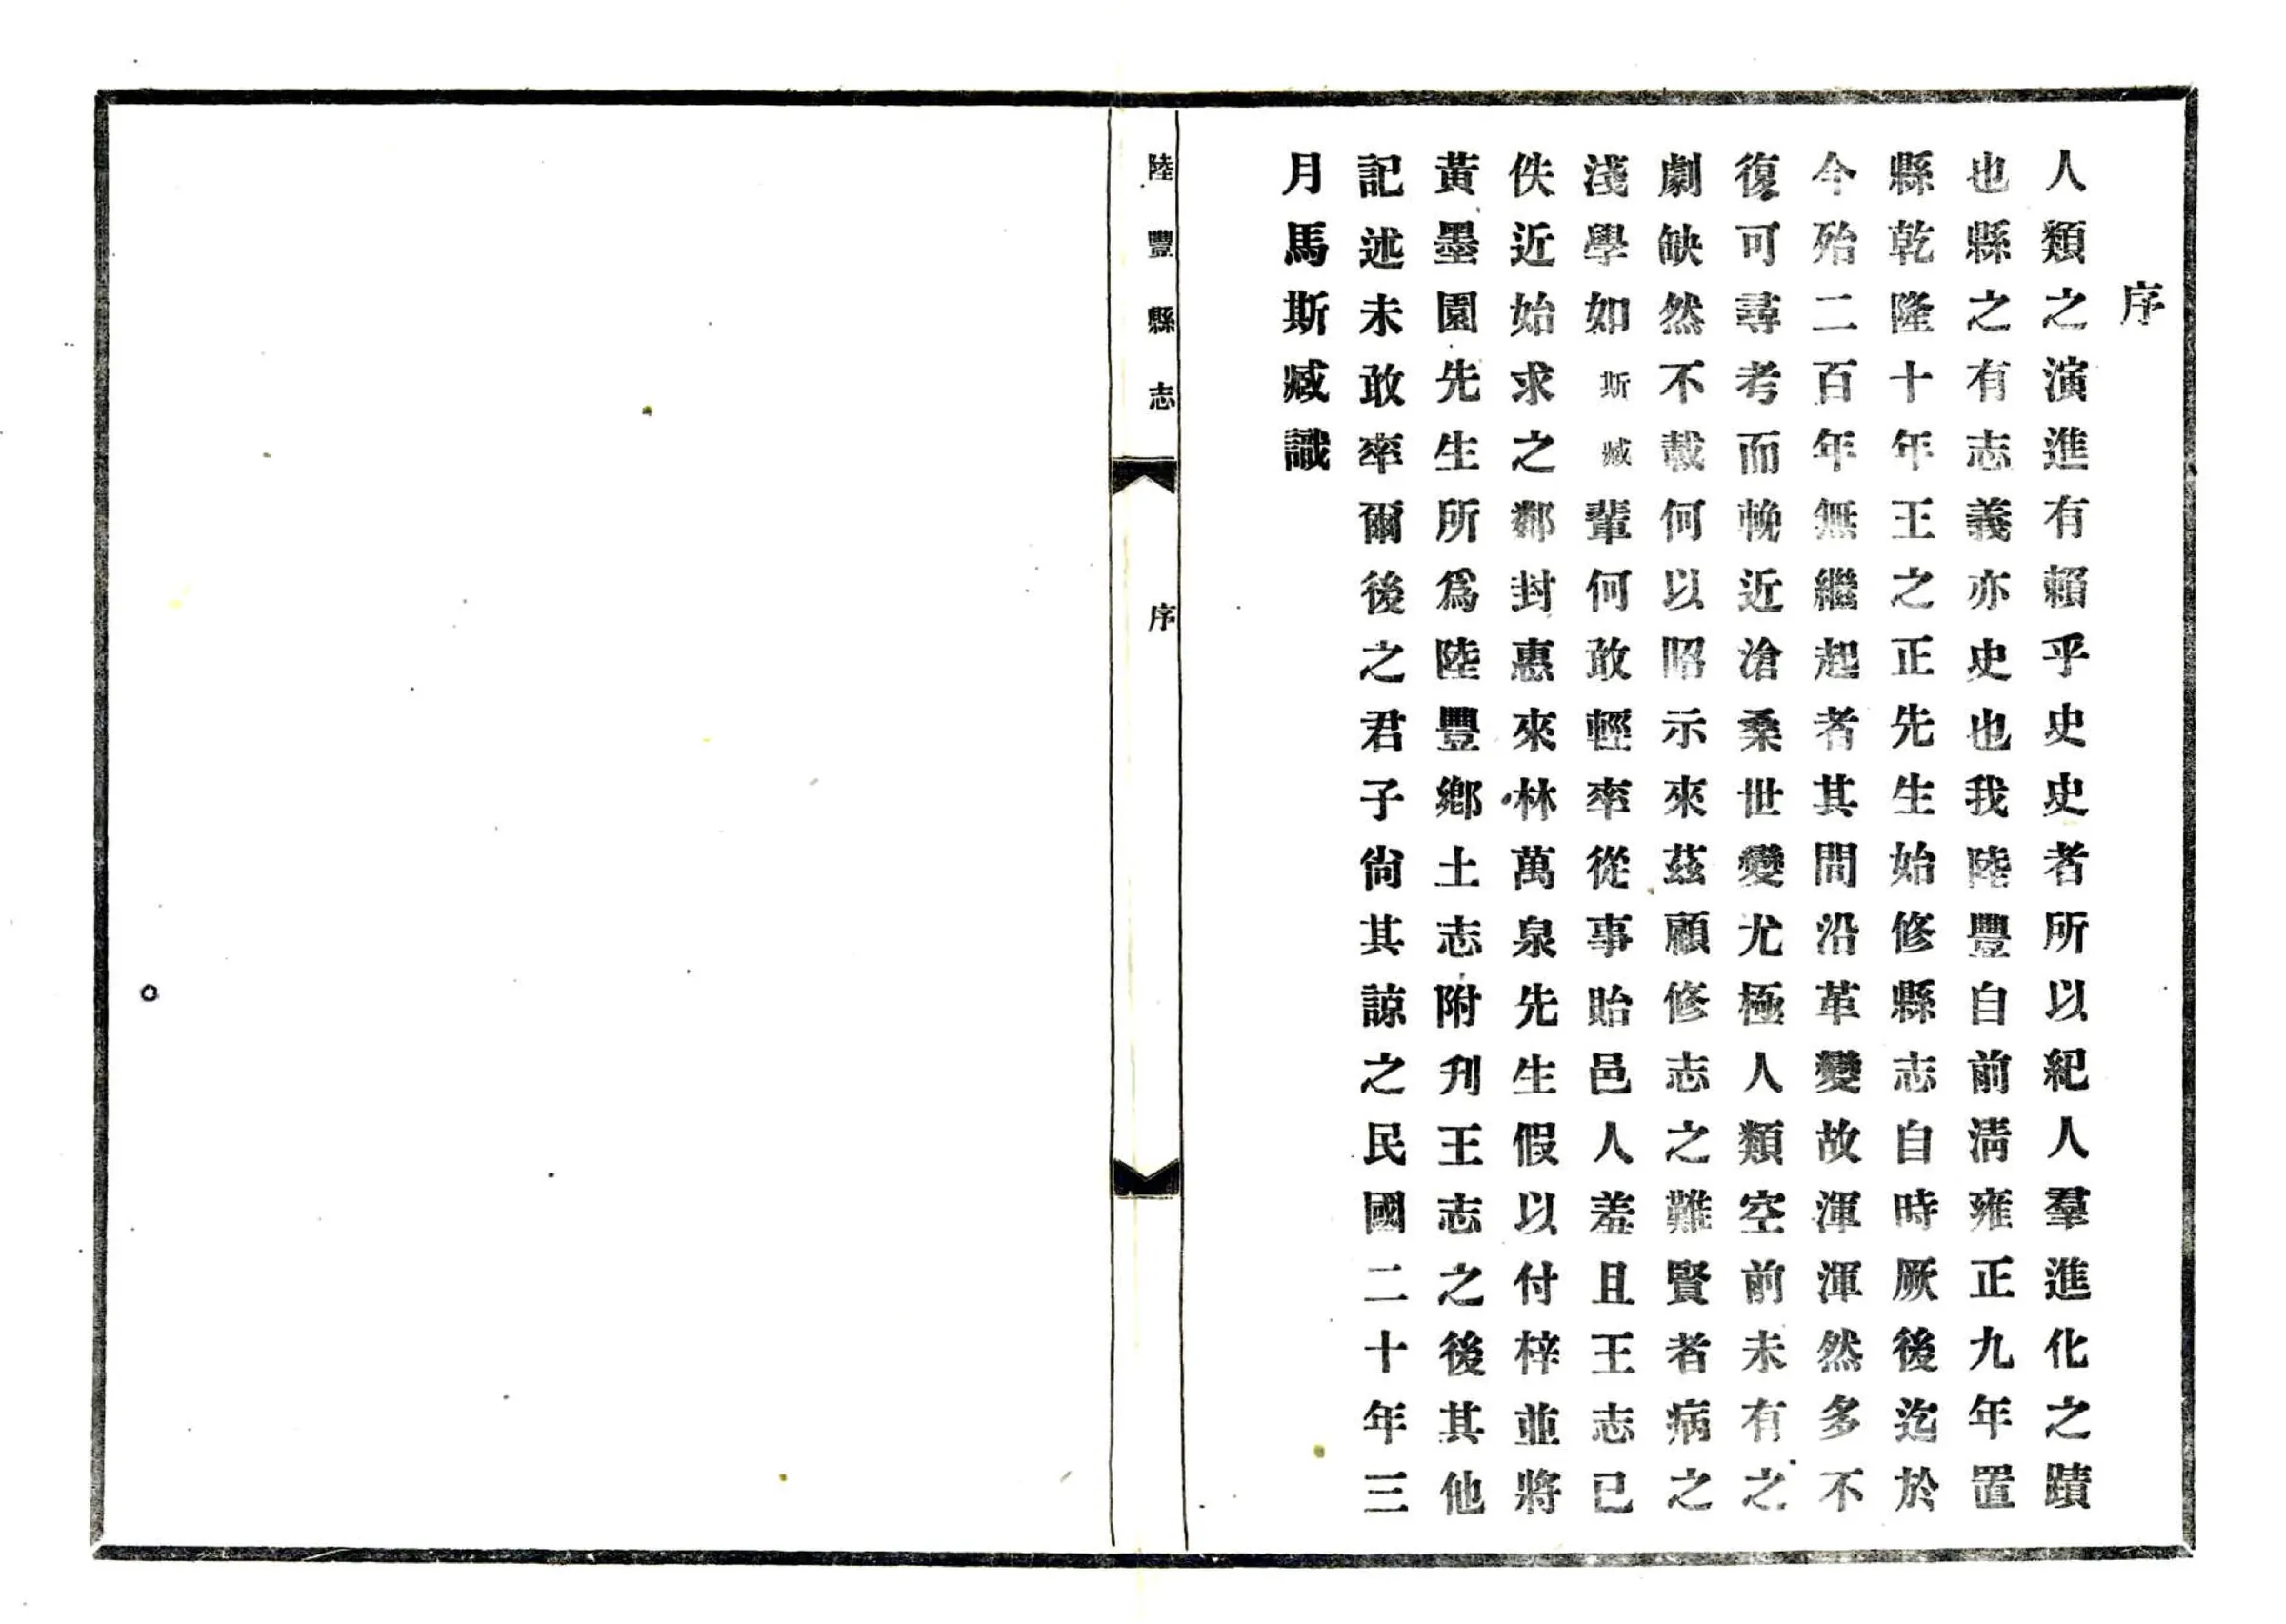 序
人類之演進有賴乎史史者所以紀人羣進化之蹟
也縣之有志義亦史也我陸豐自前清雍正九年置
縣乾隆十年王之正先生始修縣志自時厥後迄於
今殆二百年無繼起者其間沿革變故渾渾然多不
復可尋考而輓近滄桑世變尤極人類空前未有之
劇缺然不載何以昭示來茲顧修志之難賢者病之
淺學如斯臧輩何敢輕率從事貽邑人羞且王志已
佚近始求之鄰封惠來林萬泉先生假以付梓並將
黃墨園先生所爲陸豐鄉土志附刋王志之後其他
記述未敢率爾後之君子尙其諒之民國二十年三
月馬斯臧識
陸豐縣志
序